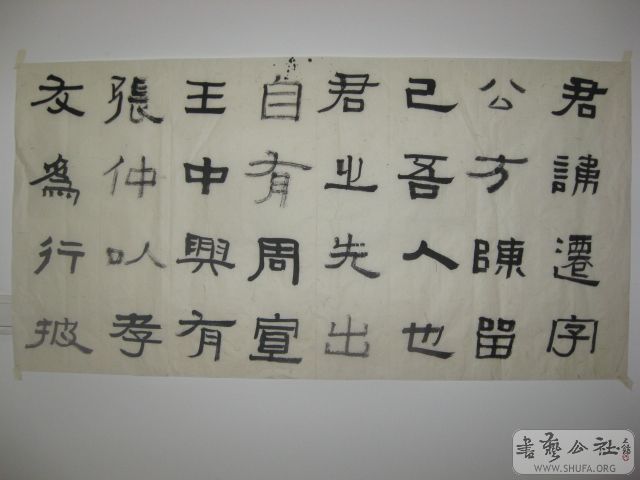 君諱遷字
公方陳留
己吾人也
君之先出
自有周宣
王中興有
張仲以孝
友為行披
書藝公社
WWW.SHUFA.ORG